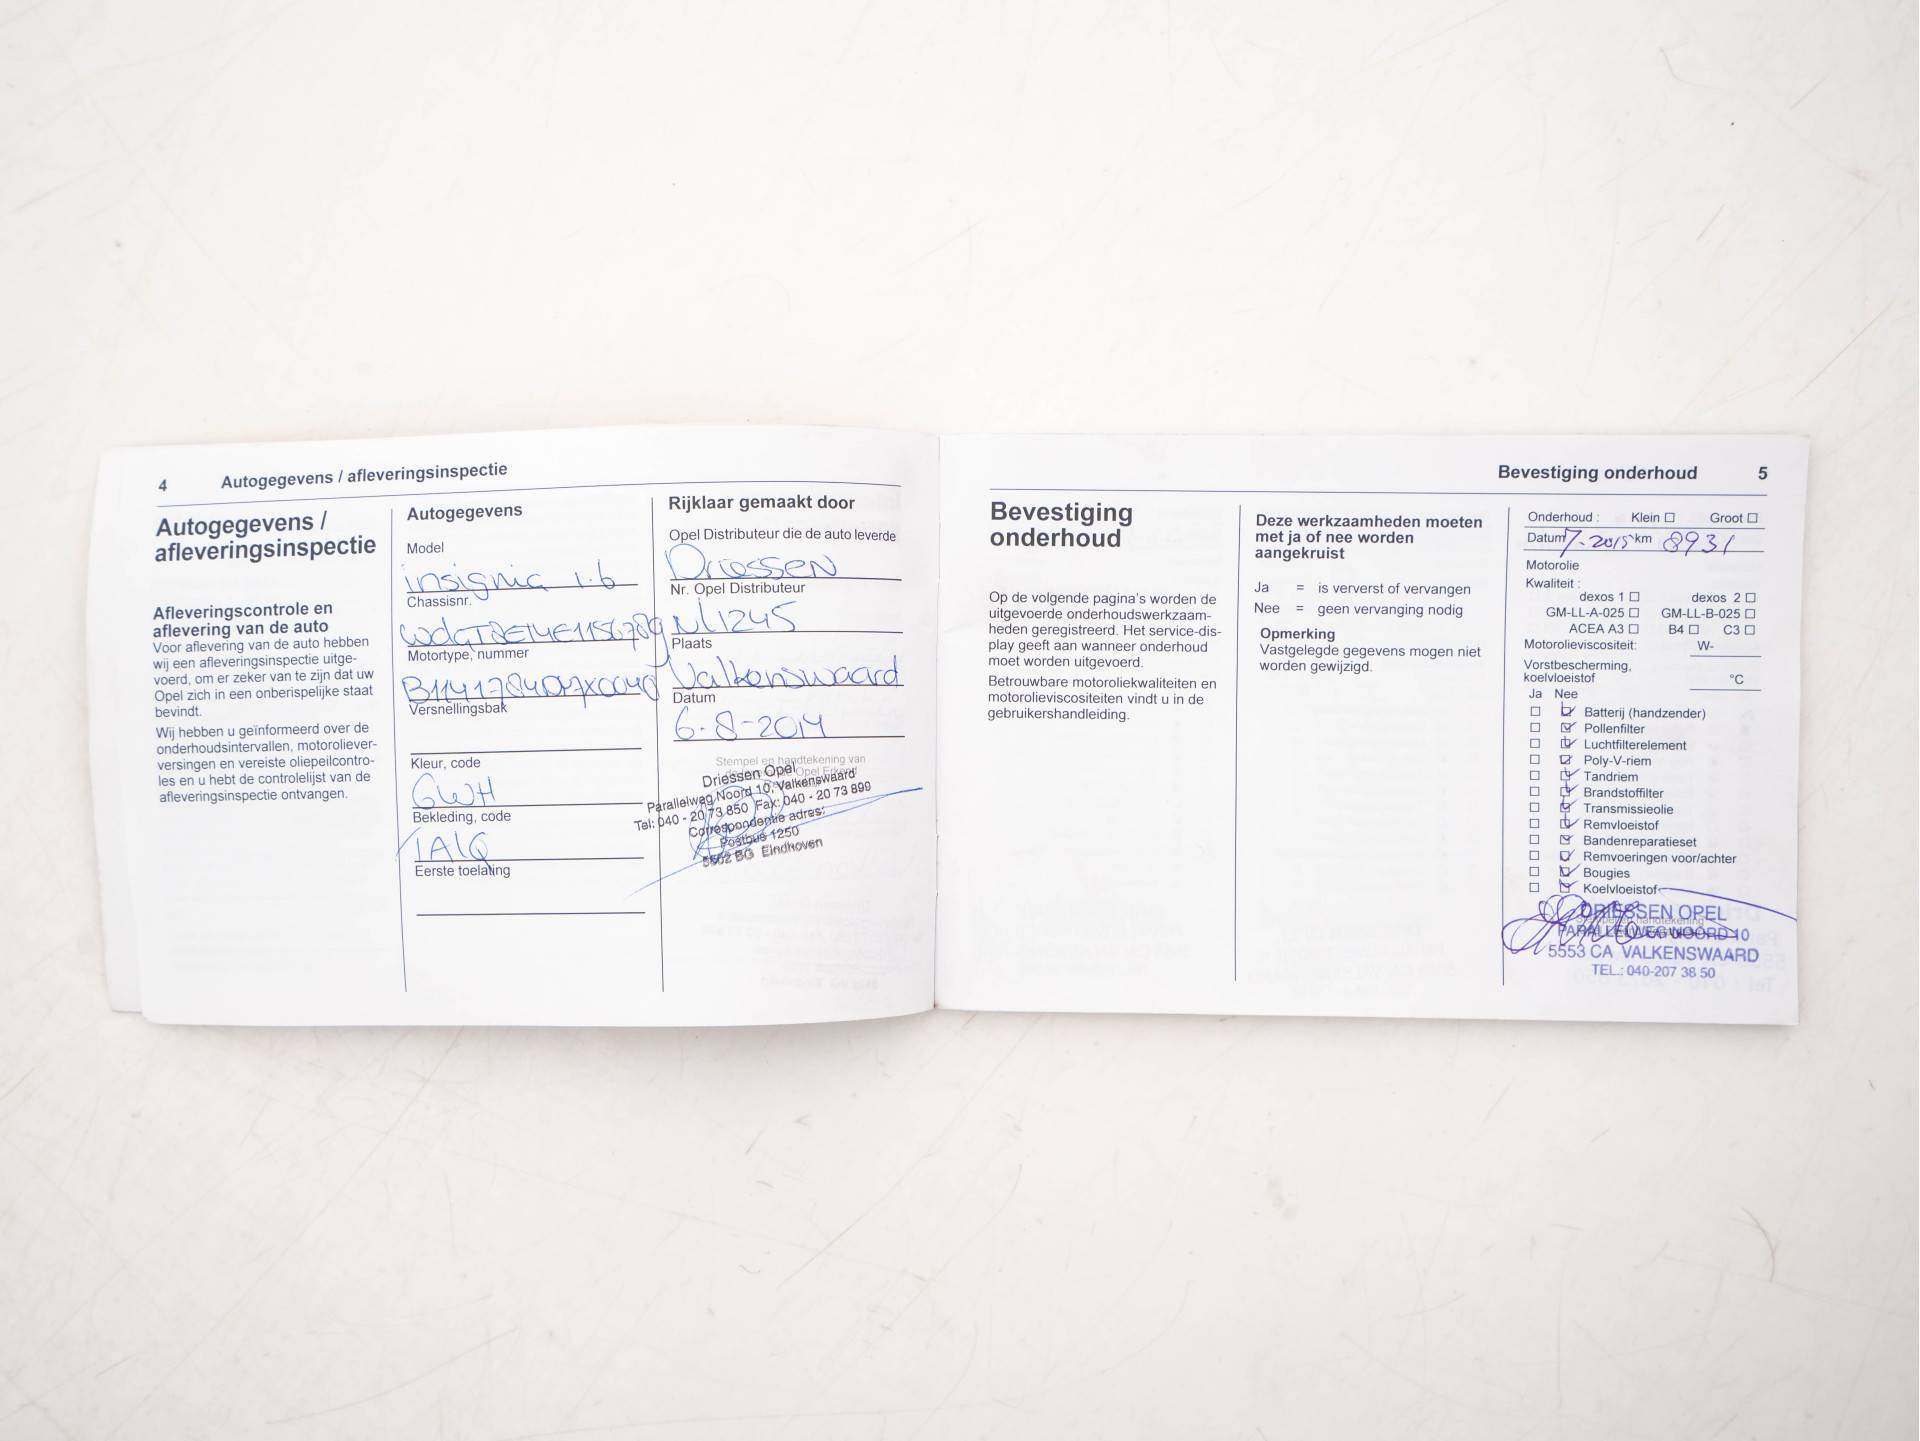 4 Autogegevens / afleveringsinspectie
Autogegevens /
afleveringsinspectie
Afleveringscontrole en
aflevering van de auto
Voor aflevering van de auto hebben
wij een afleveringsinspectie uitge-
voerd, om er zeker van te zijn dat uw
Opel zich in een onberispelijke staat
bevindt.
Wij hebben u geïnformeerd over de
onderhoudsintervallen, motoroliever-
versingen en vereiste oliepeilcontro-
les en u hebt de controlelijst van de
afleveringsinspectie ontvangen.
Autogegevens
Model
insignia 1.6
Chassisnr.
Motortype, nummer
Versnellingsbak
Kleur, code
GWH
Bekleding, code
TALQ
Eerste toelating
Rijklaar gemaakt door
Opel Distributeur die de auto leverde
Driessen
Nr. Opel Distributeur
NL1245
Plaats
Valkenswaard
Datum
6-8-2014
Stempel en handtekening van
Driessen Opel
Parallelweg Noord 10, Valkenswaard
Tel: 040 - 20 73 850 Fax: 040 - 20 73 899
Correspondentie adres:
Postbus 1250
5502 BG Eindhoven
Bevestiging onderhoud 5
Bevestiging
onderhoud
Op de volgende pagina's worden de
uitgevoerde onderhoudswerkzaam-
heden geregistreerd. Het service-dis-
play geeft aan wanneer onderhoud
moet worden uitgevoerd.
Betrouwbare motoroliekwaliteiten en
motorolieviscositeiten vindt u in de
gebruikershandleiding.
Deze werkzaamheden moeten
met ja of nee worden
aangekruist
Ja = is ververst of vervangen
Nee = geen vervanging nodig
Opmerking
Vastgelegde gegevens mogen niet
worden gewijzigd.
Onderhoud : Klein Groot
Datum 7-2015 km 8931
Motorolie
Kwaliteit :
dexos 1 dexos 2
GM-LL-A-025 GM-LL-B-025
ACEA A3 B4 C3
Motorolieviscositeit: W-
Vorstbescherming,
koelvloeistof °C
Ja Nee
Batterij (handzender)
Pollenfilter
Luchtfilterelement
Poly-V-riem
Tandriem
Brandstoffilter
Transmissieolie
Remvloeistof
Bandenreparatieset
Remvoeringen voor/achter
Bougies
Koelvloeistof
DRIESSEN OPEL
PARALLELWEG NOORD 10
5553 CA VALKENSWAARD
TEL.: 040-207 38 50